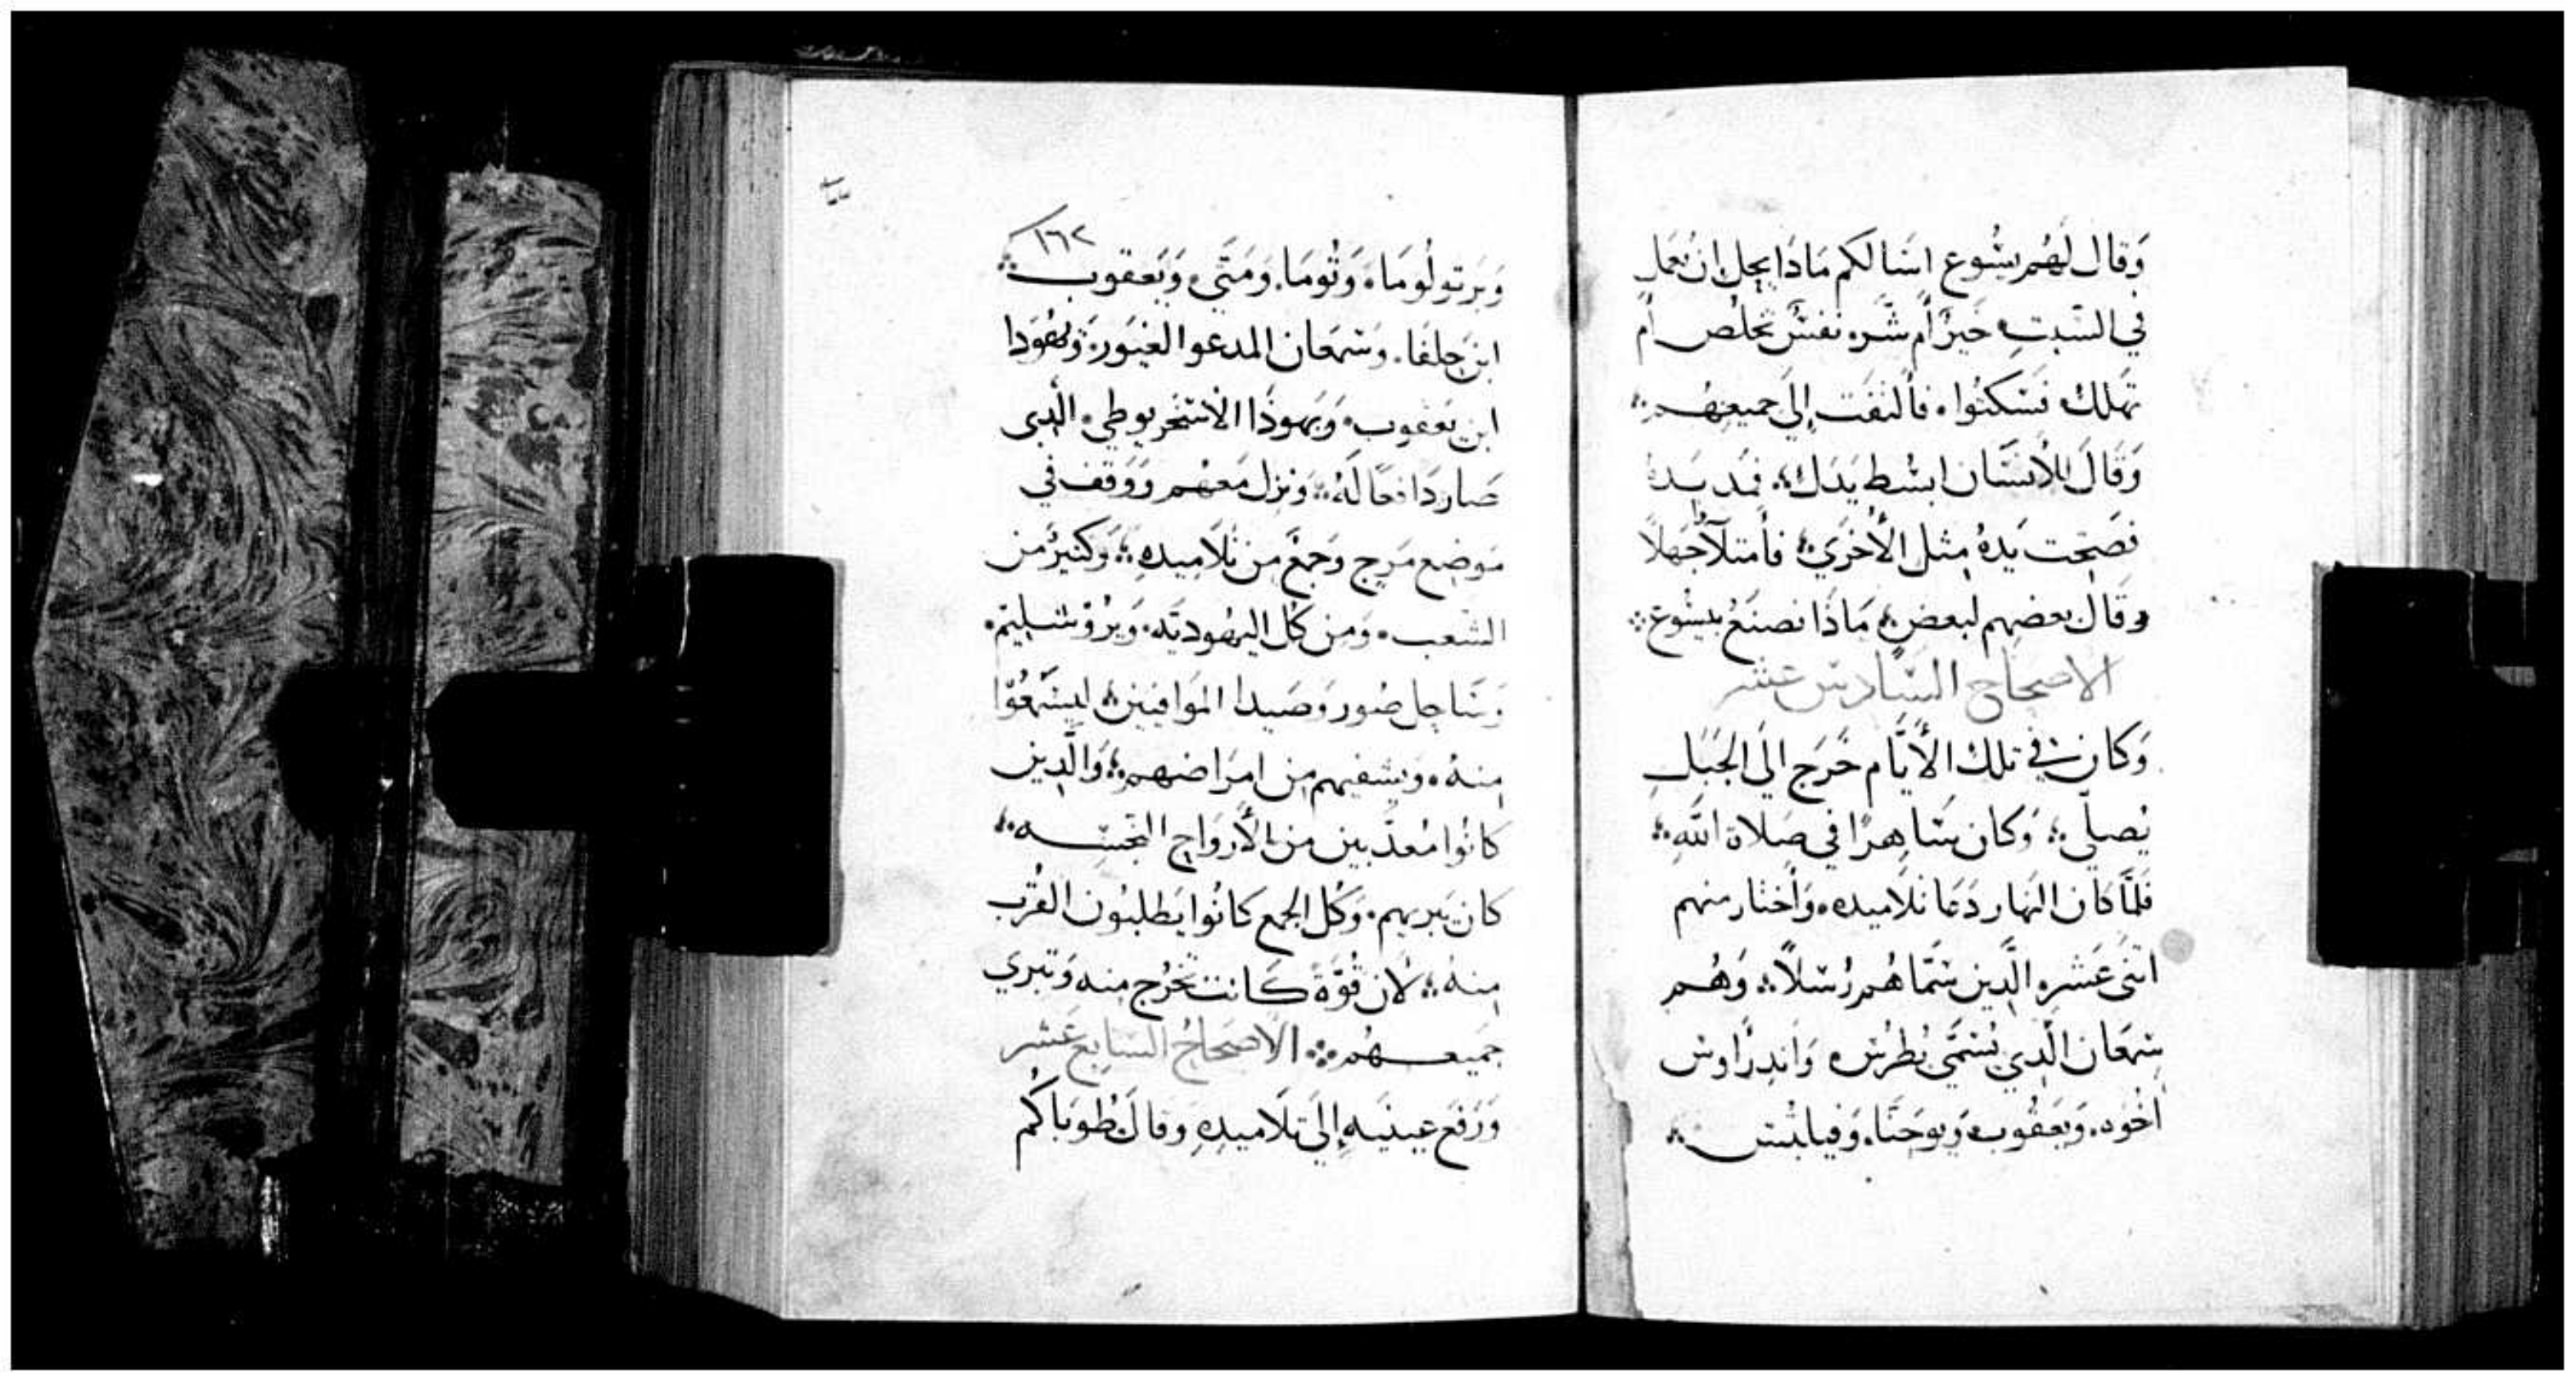 وَقال لَهُم يشُوع اسَالكم مَاذَا يحِل ان نعمل
في السَبتِ خَيرٌ أم شَر، نَفسٌ تخلُص أم
تهلك فسَكتُوا، فألتفت إلى جميعهم
وَقَالَ للأنسَان ابسُط يَدَك، فمد يده
فصَحِت يَدهُ مِثل الأخرَي، فأمتلآ جَهلاً
وقال بعضهم لبعض، مَاذَا نصنَعُ بيشُوع
الاصحاح السَادس عَشر
وَكان في تلك الأيَّام خَرَج الَى الجَبَل
يُصلّي، وَكان سَاهرًا في صَلاة الله
فَلمَّا كان النهار دَعَا تلاميده، وَأختار منهم
اتنَى عَشر، الَّدِين سَمَّاهُم رُسلاً، وَهُم
سمعَان الَّدِي يُسَمَّى بُطرس، وَاندِرَاوس
اخُوه، وَيَعقُوب وَيوحَنَّا، وَفيلبُس
١٦٢
وَبَرتولُومَا، وَتُومَا، وَمَتَّى، وَيَعقوب
ابن حلفا، وَسمعَان المدعو الغيُور، وَيهُودَا
ابن يَعقوب، وَيَهوذَا الاسخَريوطي، الَّدِى
صَار دَافعًا لَهُ، وَنزل مَعهُم وَوَقف في
مَوضِع مَرج وَجمعٌ مِن تلاَميدِه، وَكتيرٌ من
الشعب، وَمِن كُل اليهُوديَّه، وَيرُوشليم،
وَسَاحِل صُور وَصَيدا الموَافيين، ليسمَعُوا
مِنهُ، وَيشفيهم مِن امرَاضهم، وَالَّدِين
كانُوا مُعذّبين من الأروَاح النجسه
كان يَبريهم، وَكُل الجمع كانُوا يَطلبُون القُرب
مِنهُ، لأن قُوّةً كَانت تخَرُج مِنه وَتبري
جَميعهُم الاصحَاحُ السَابع عَشر
وَرَفع عَينيهِ إلَى تلاَميدِهِ وقالَ طُوبَاكُم